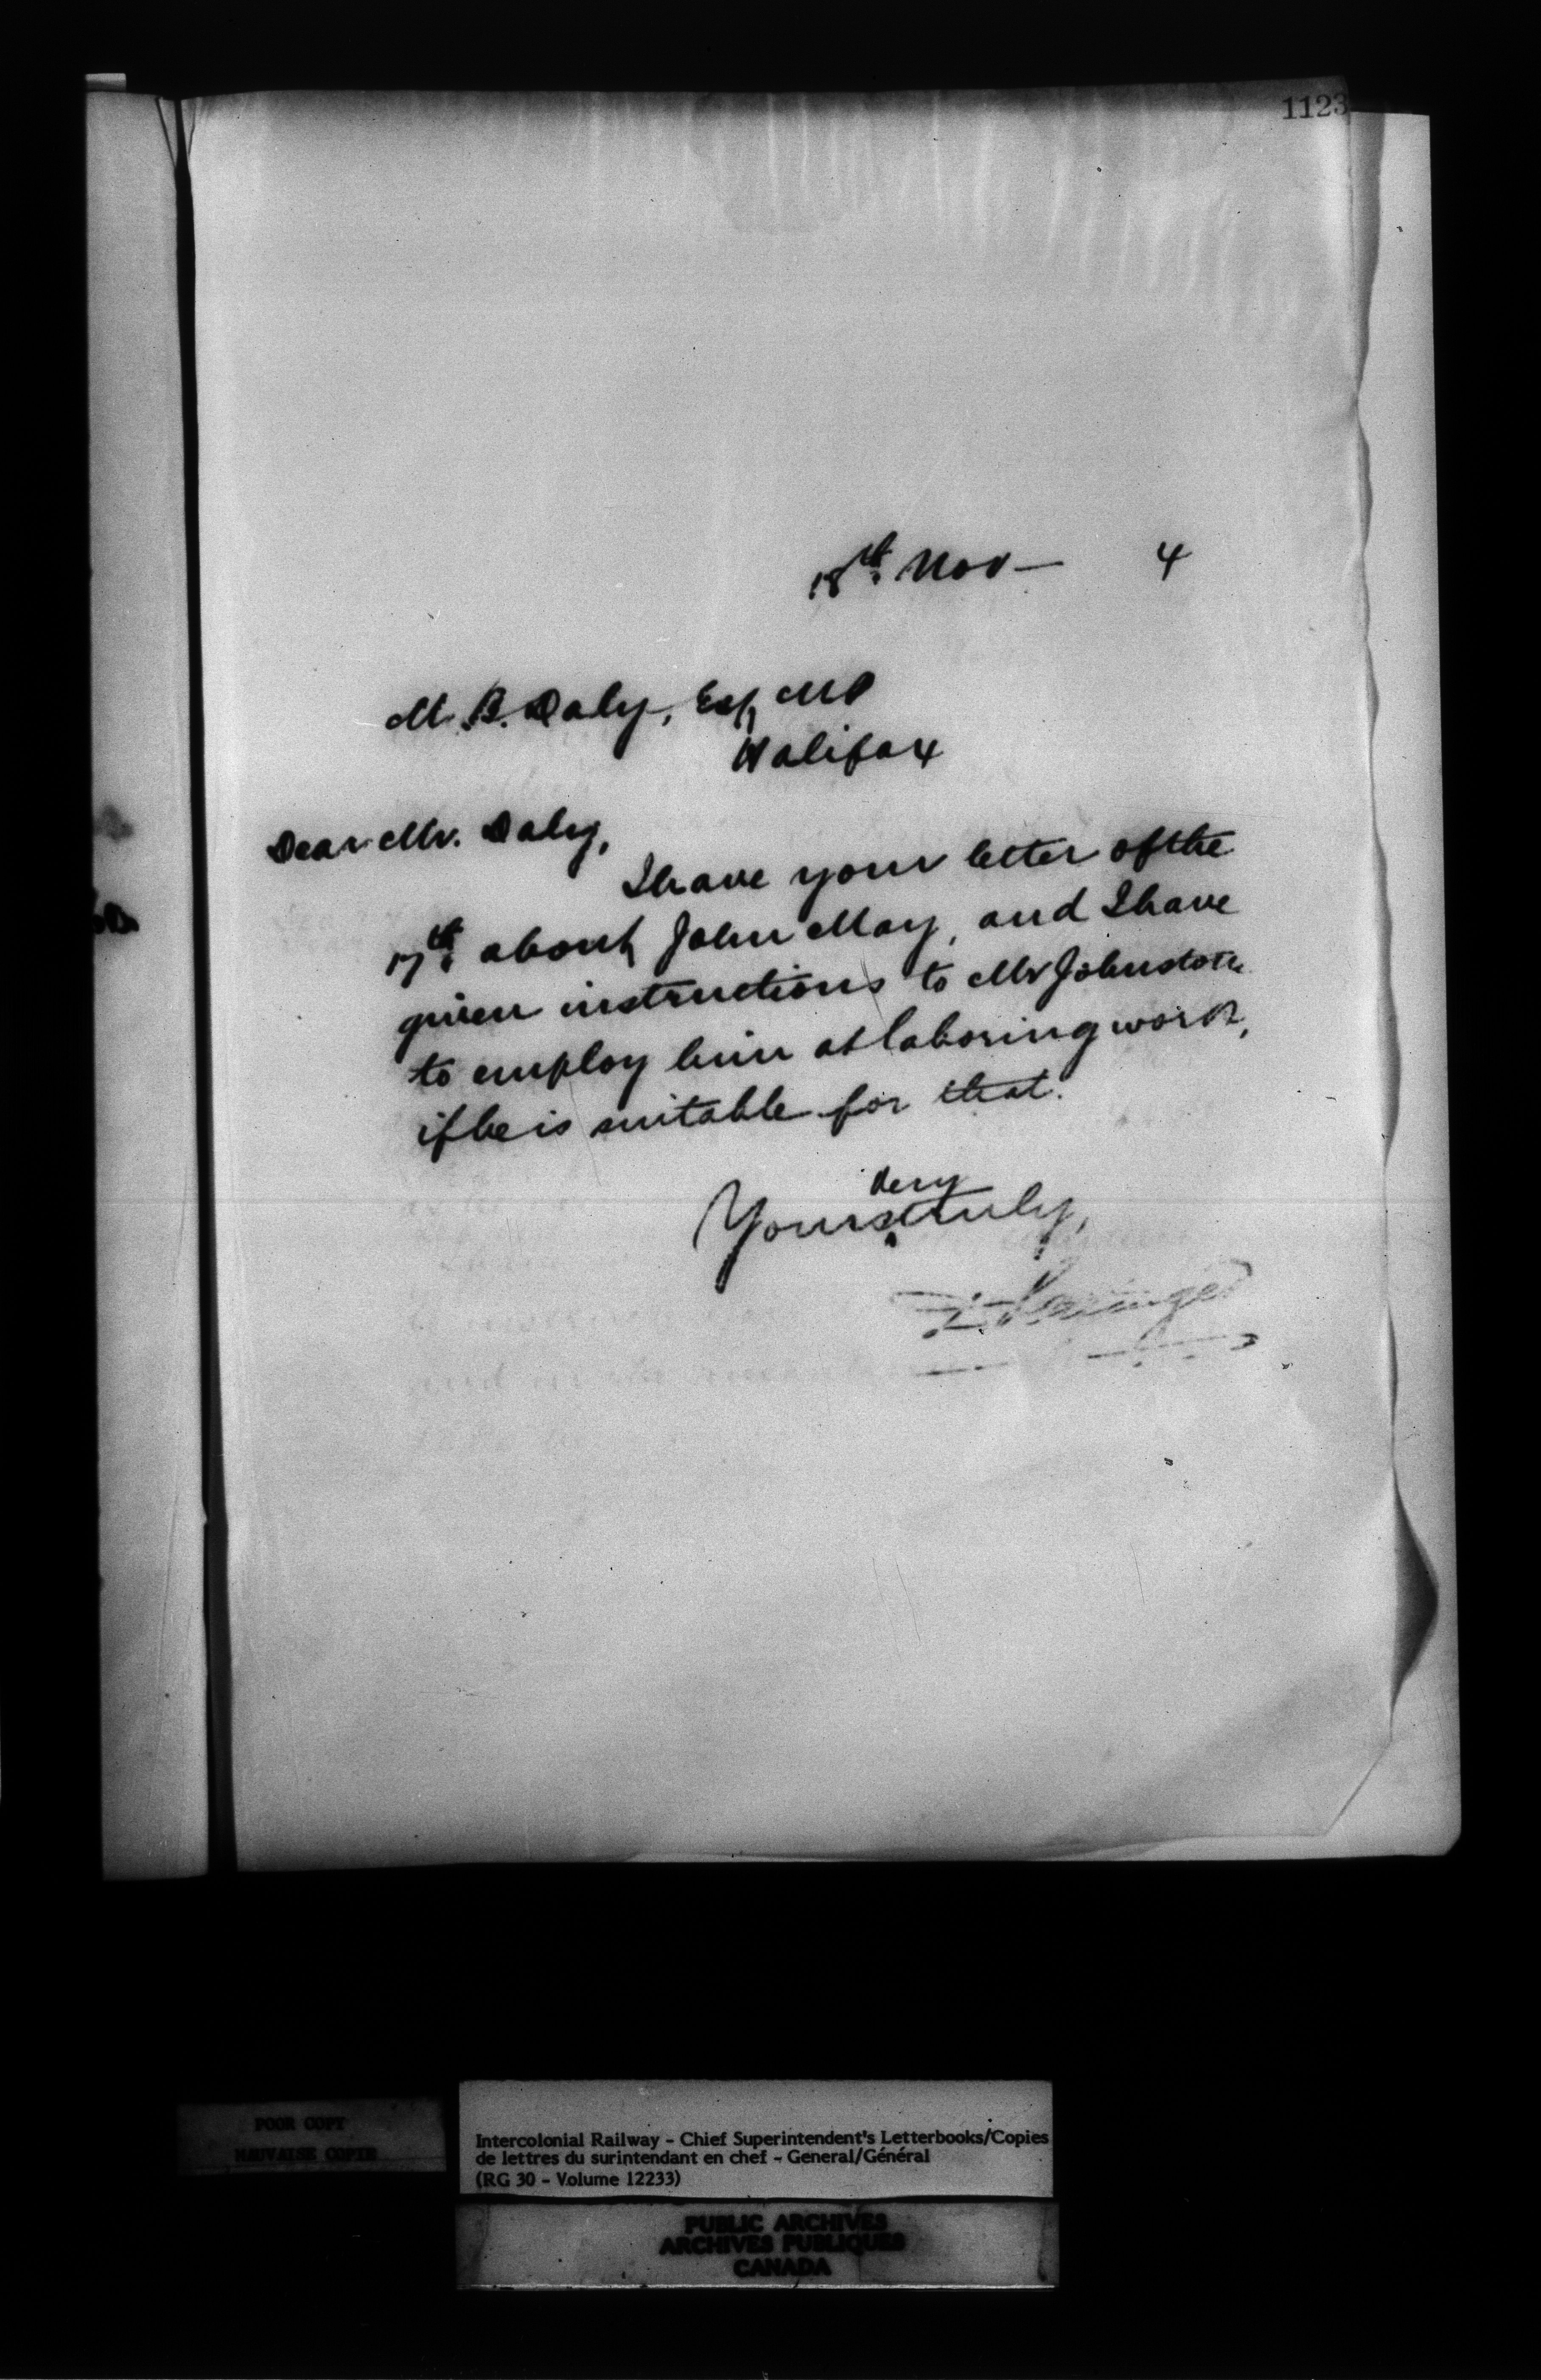 1123
18th. Nov — 4
M. B. Daly, Esq, MP
Halifax
Dear Mr. Daly,
I have your letter of the
17th. about John May, and I have
given instructions to Mr Johnstone
to employ him at laboring work,
if he is suitable for that.
very
Yours truly,
POOR COPY
MAUVAISE COPIE
Intercolonial Railway - Chief Superintendent's Letterbooks/Copies
de lettres du surintendant en chef - General/Général
(RG 30 - Volume 12233)
PUBLIC ARCHIVES
ARCHIVES PUBLIQUES
CANADA